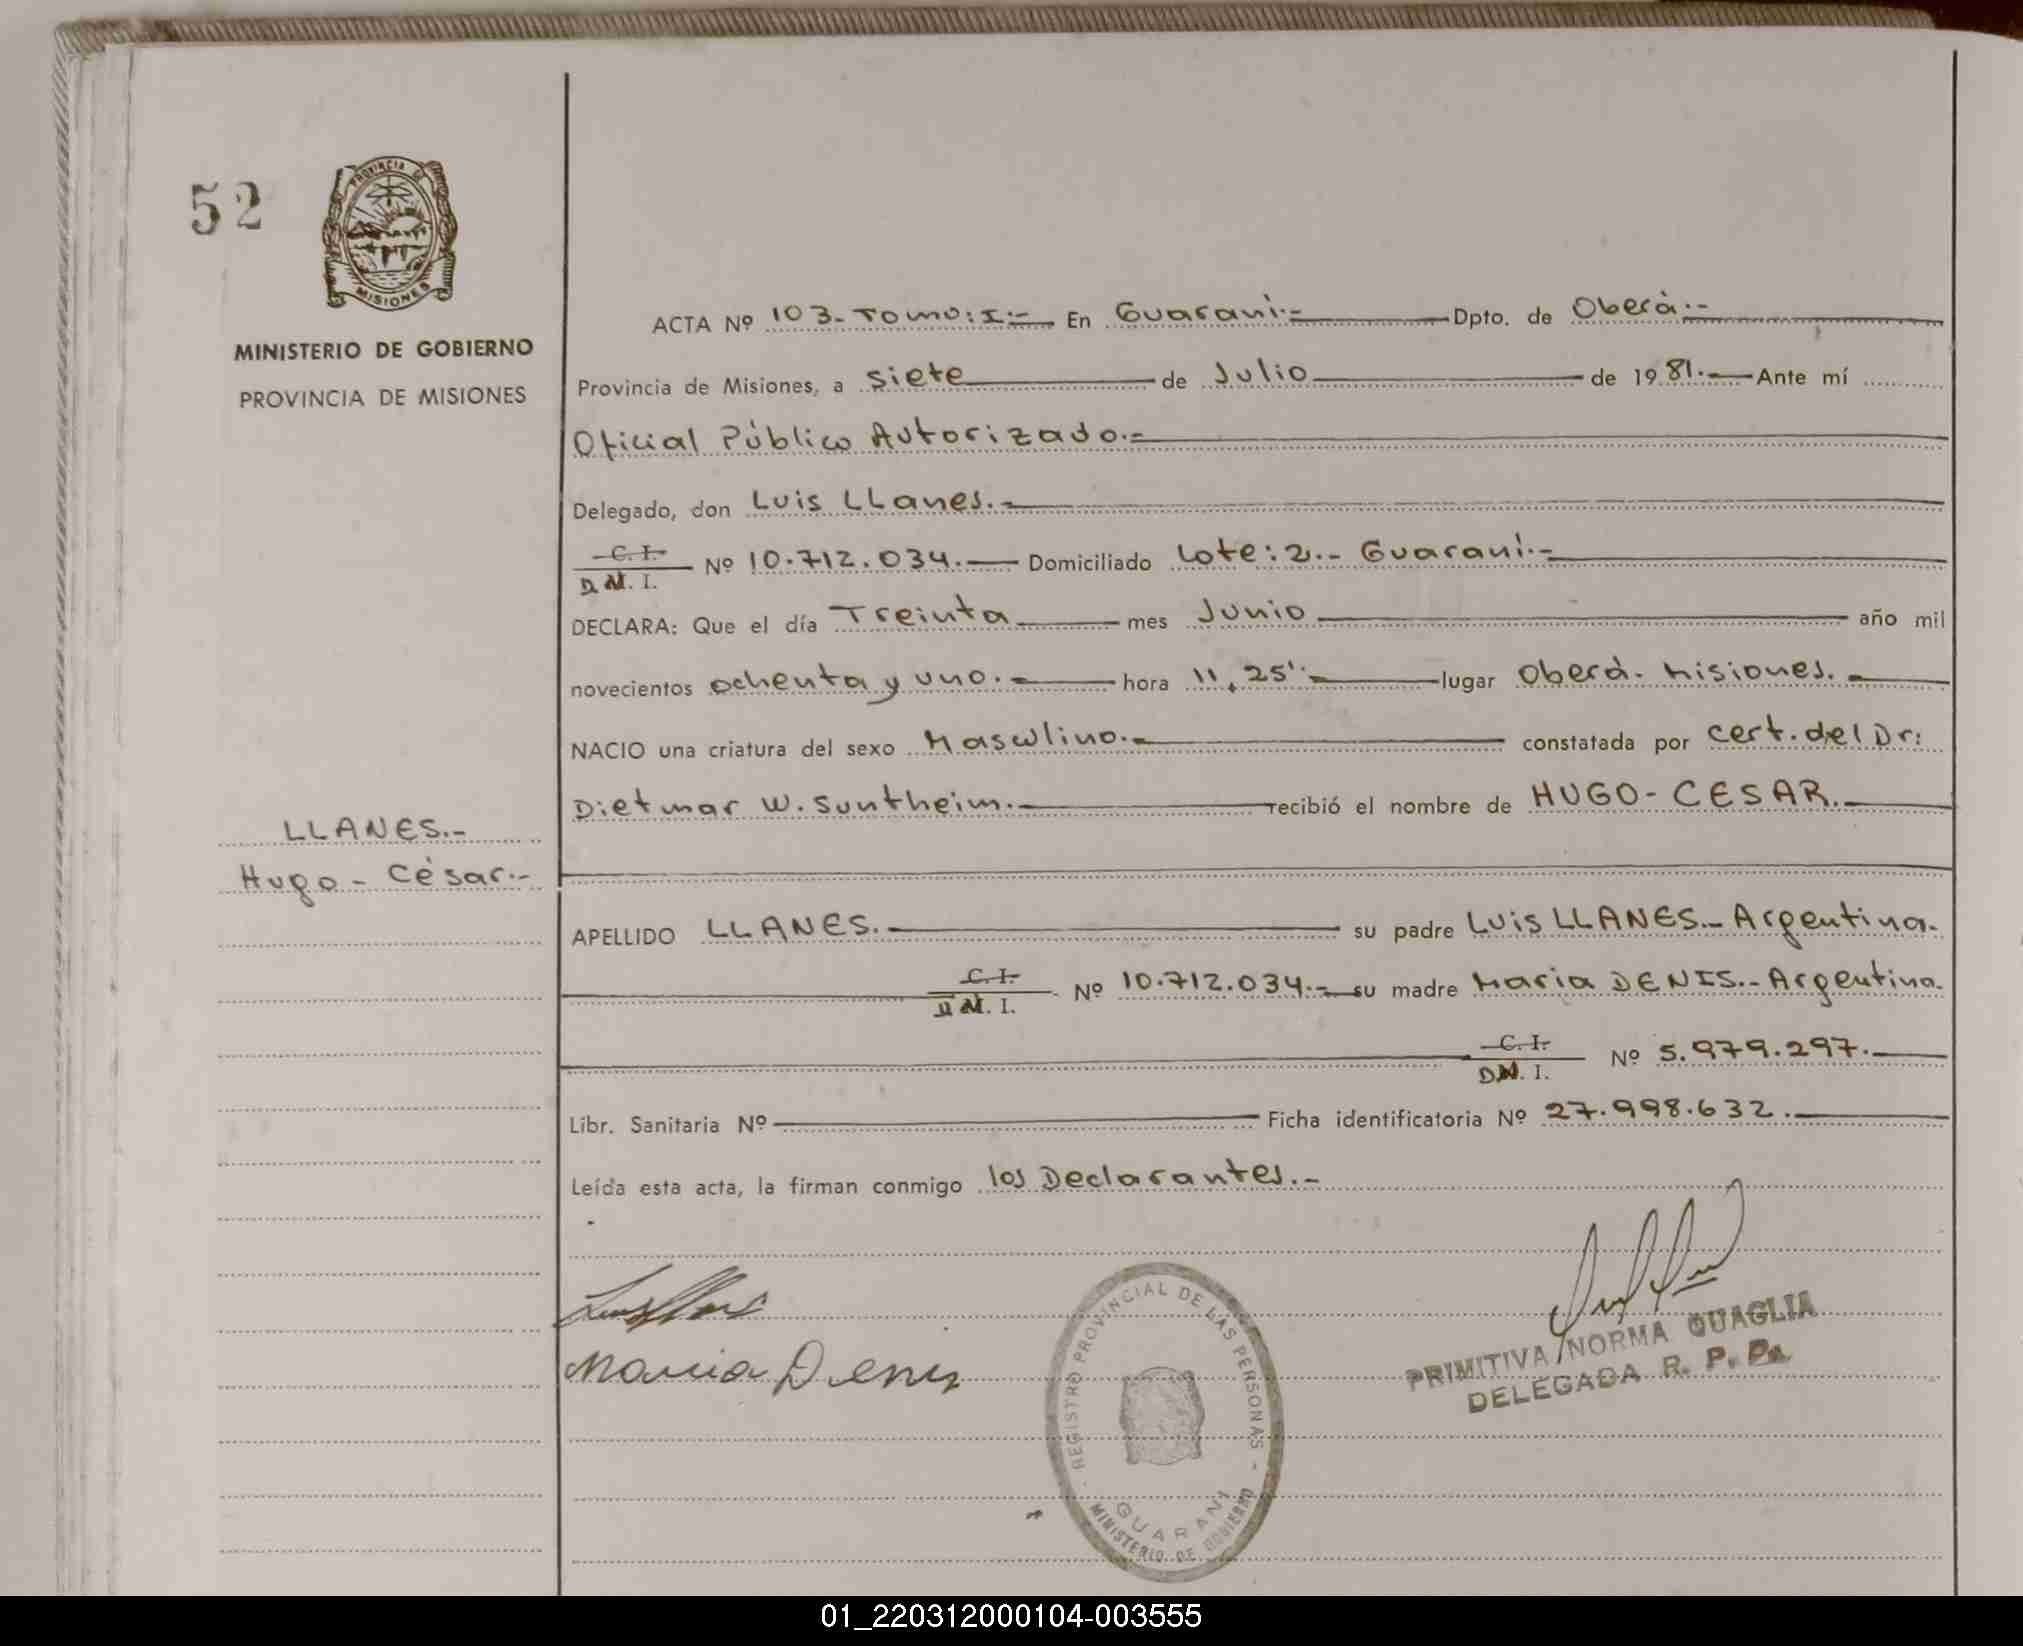 52
PROVINCIA DE
MISIONES
MINISTERIO DE GOBIERNO
PROVINCIA DE MISIONES
LLANES.-
Hugo - César.-
ACTA Nº 103-Tomo:I.- En Guaraní.- Dpto. de Oberá.-
Provincia de Misiones, a siete de Julio de 1981.- Ante mí
Oficial Público Autorizado.-
Delegado, don Luis LLanes.-
C. I.
D.N. I. Nº 10.712.034.- Domiciliado Lote:2.- Guaraní.-
DECLARA: Que el día Treinta mes Junio año mil
novecientos ochenta y uno.- hora 11,25'.- lugar Oberá. Misiones.-
NACIO una criatura del sexo Masculino.- constatada por cert. del Dr:
Dietmar W. Suntheim.- recibió el nombre de HUGO-CESAR.-
APELLIDO LLANES.- su padre Luis LLANES.- Argentina.
C. I.
D.N. I. Nº 10.712.034.- su madre Maria DENIS.- Argentina.
C. I.
D.N. I. Nº 5.979.297.-
Libr. Sanitaria Nº Ficha identificatoria Nº 27.998.632.-
Leída esta acta, la firman conmigo los Declarantes.-
Maria Denis
REGISTRO PROVINCIAL DE LAS PERSONAS
GUARANI
MINISTERIO DE GOBIERNO
PRIMITIVA NORMA QUAGLIA
DELEGADA R. P. P.
01_220312000104-003555